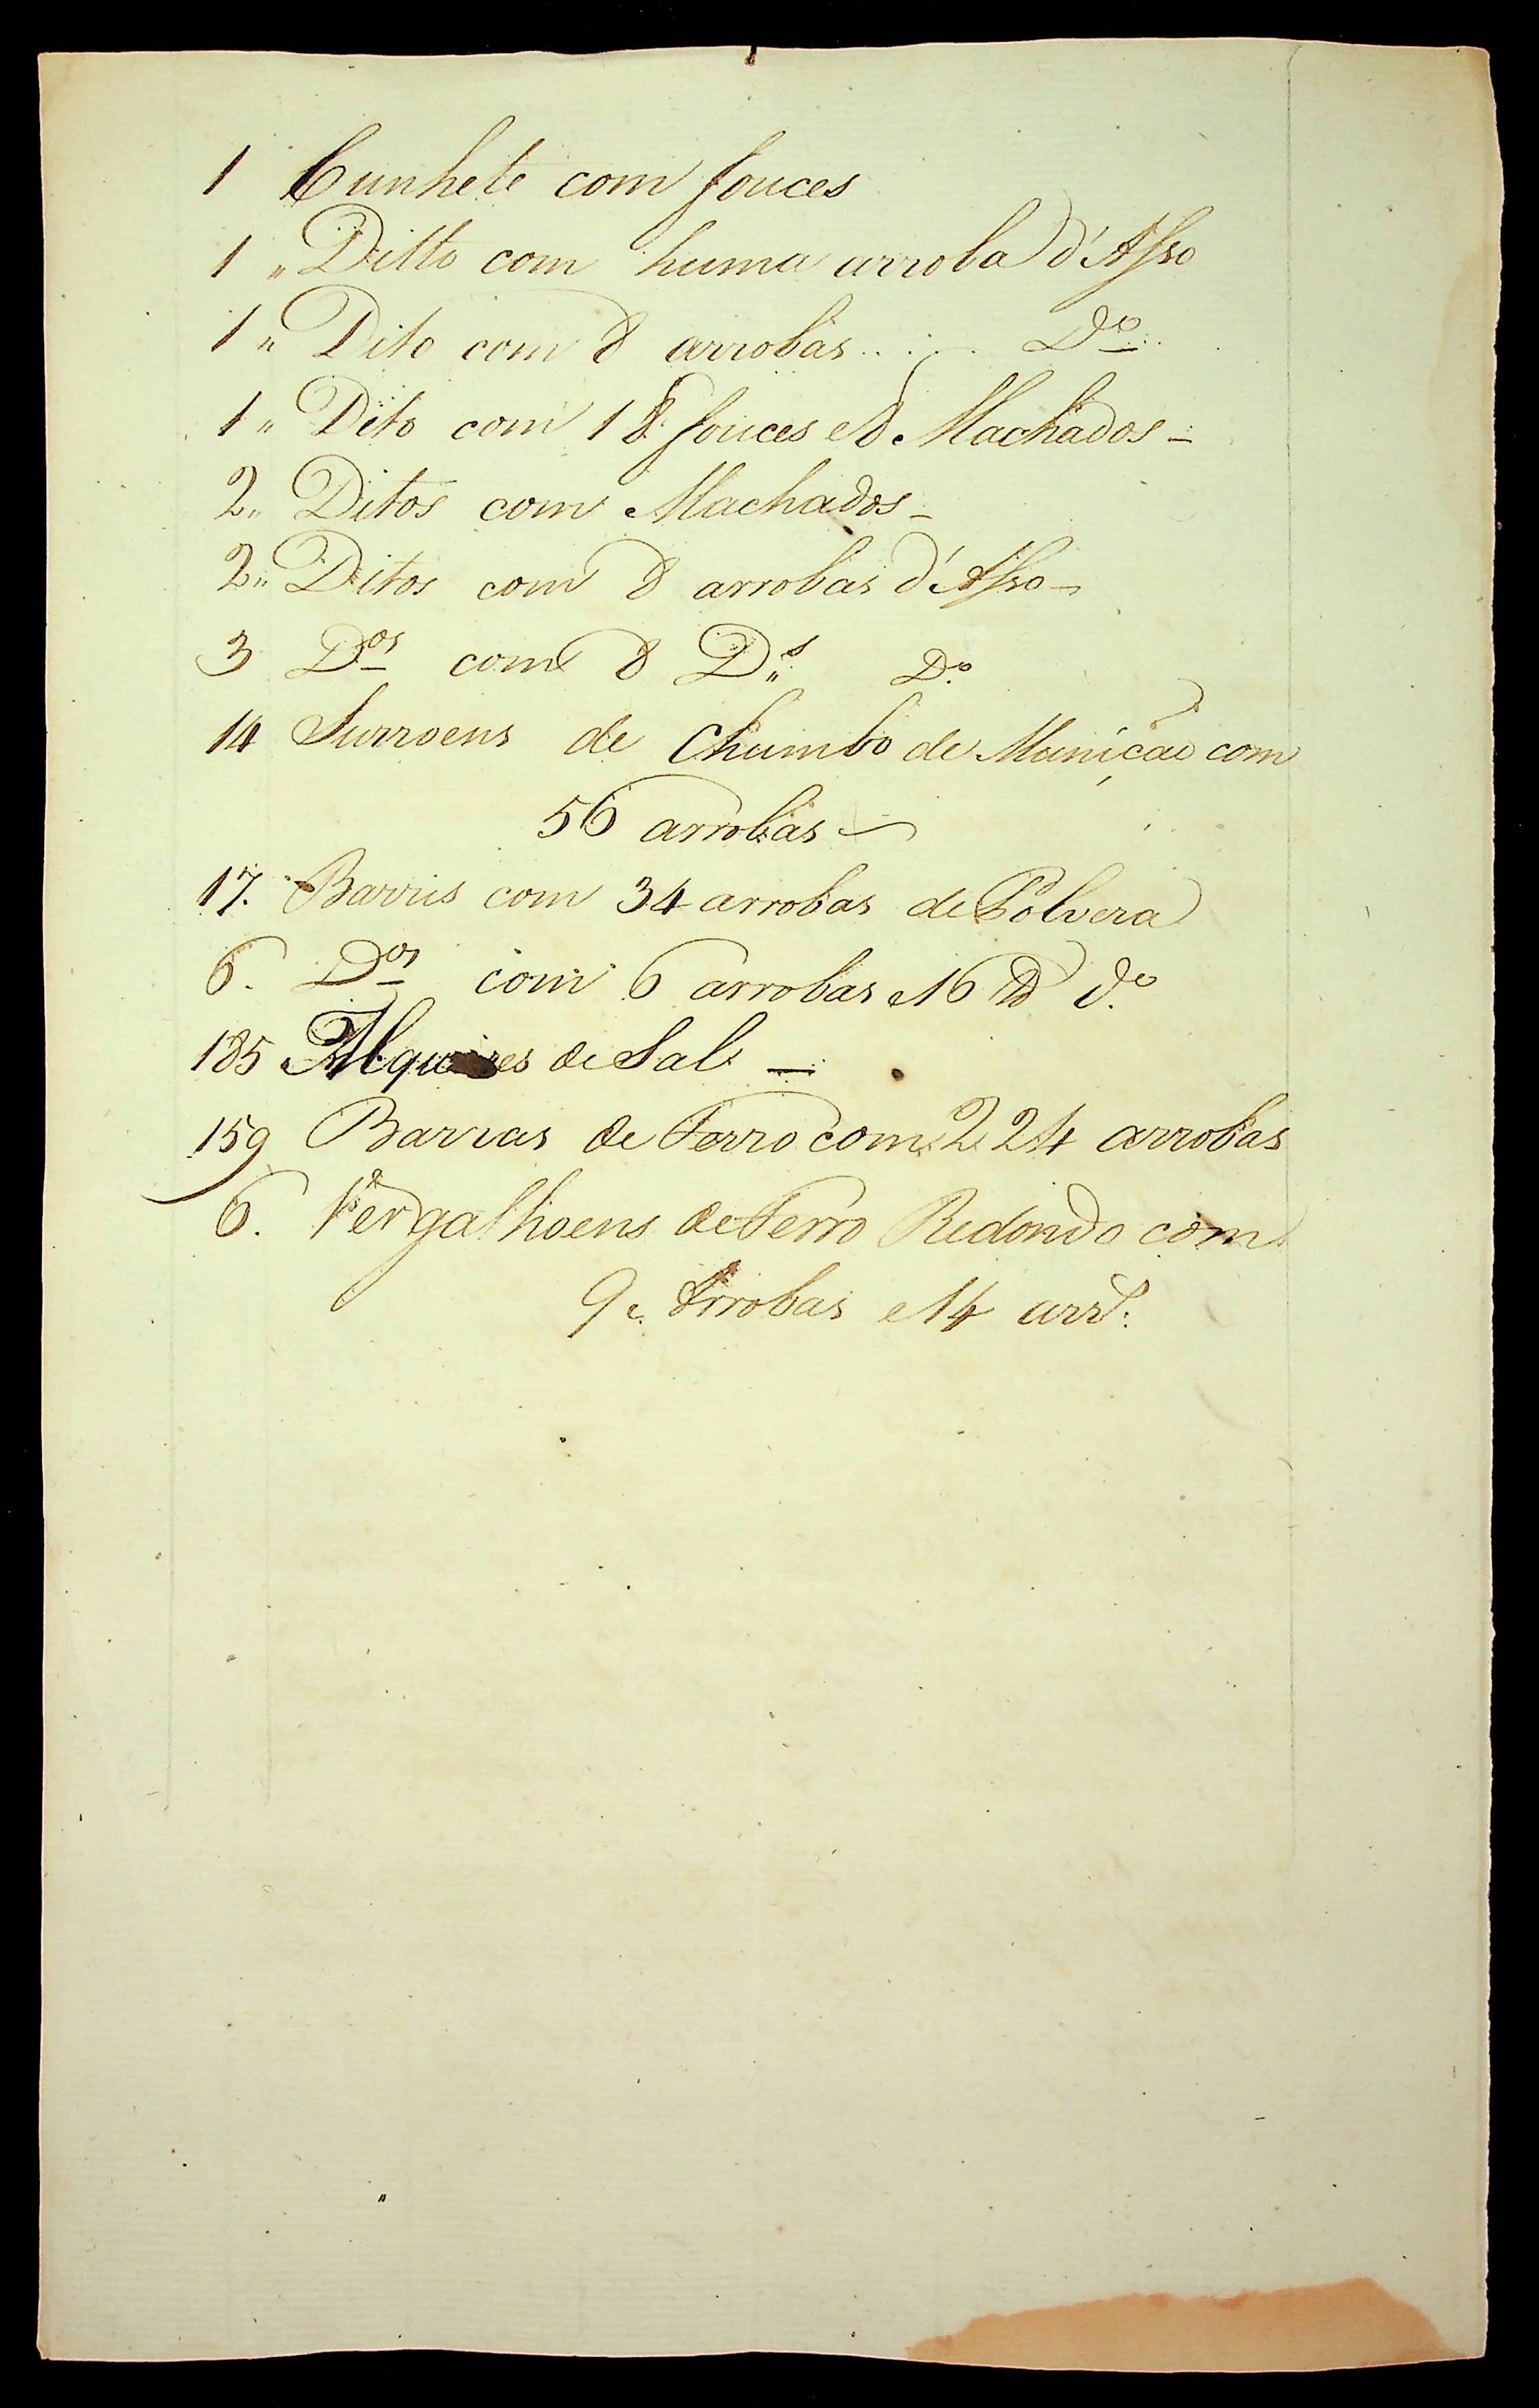 1 Cunhete com fouces
1 " Ditto com huma arroba d'Asso
1 " Dito com 8 arrobas . . . . Dº
1 " Dito com 18 fouces e 8 Machados -
2 " Ditos com Machados -
2 " Ditos com 8 arrobas d'Asso -
3 Dos com 8 Ds Dº
14 Surroens de Chumbo de Munição com
56 arrobas -
17. Barris com 34 arrobas de Polvera
6. Dos com 6 arrobas e 16 ℔ dº
185 Alqueires de Sal -
159 Barras de Ferro com 224 arrobas
6. Vergalhoens de Ferro Redondo com
9 Arrobas e 14 arrs.